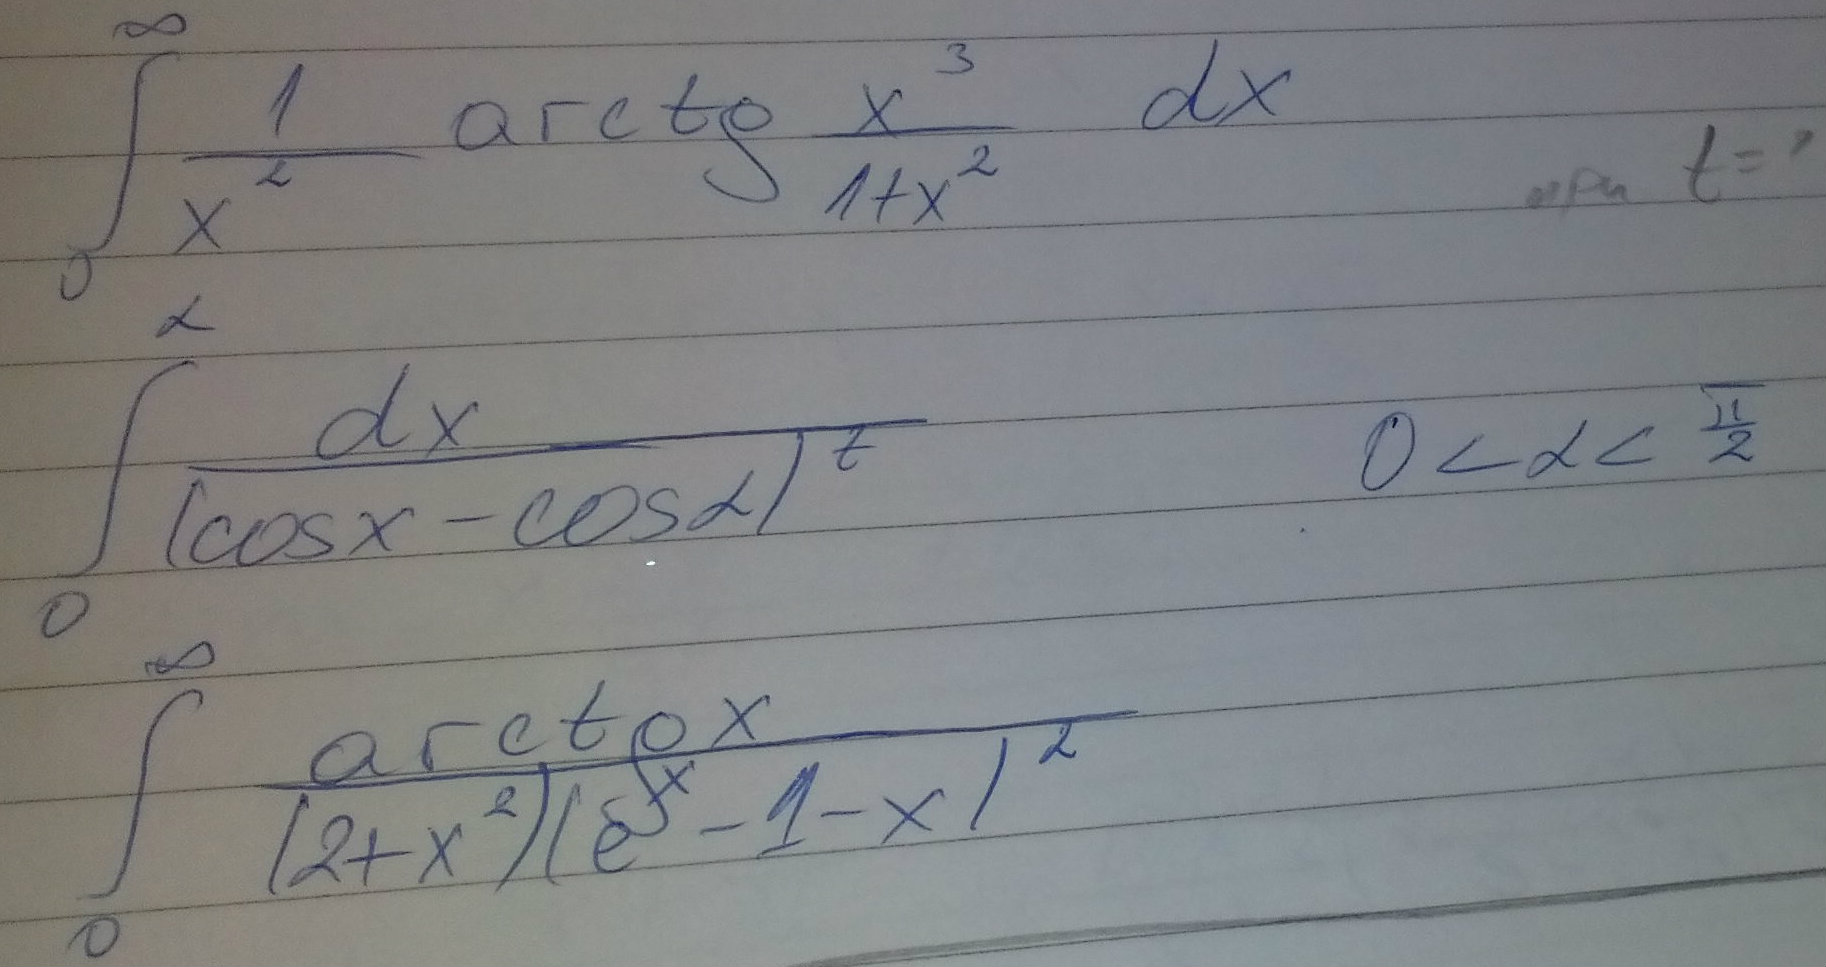 ∫₀^∞ 1/x² arctg x³/(1+x²) dx
t = ?
∫₀^α dx/(cosx - cosα)^t 0 < α < π/2
∫₀^∞ arctgx/((2+x²)(e^x - 1 - x)²)